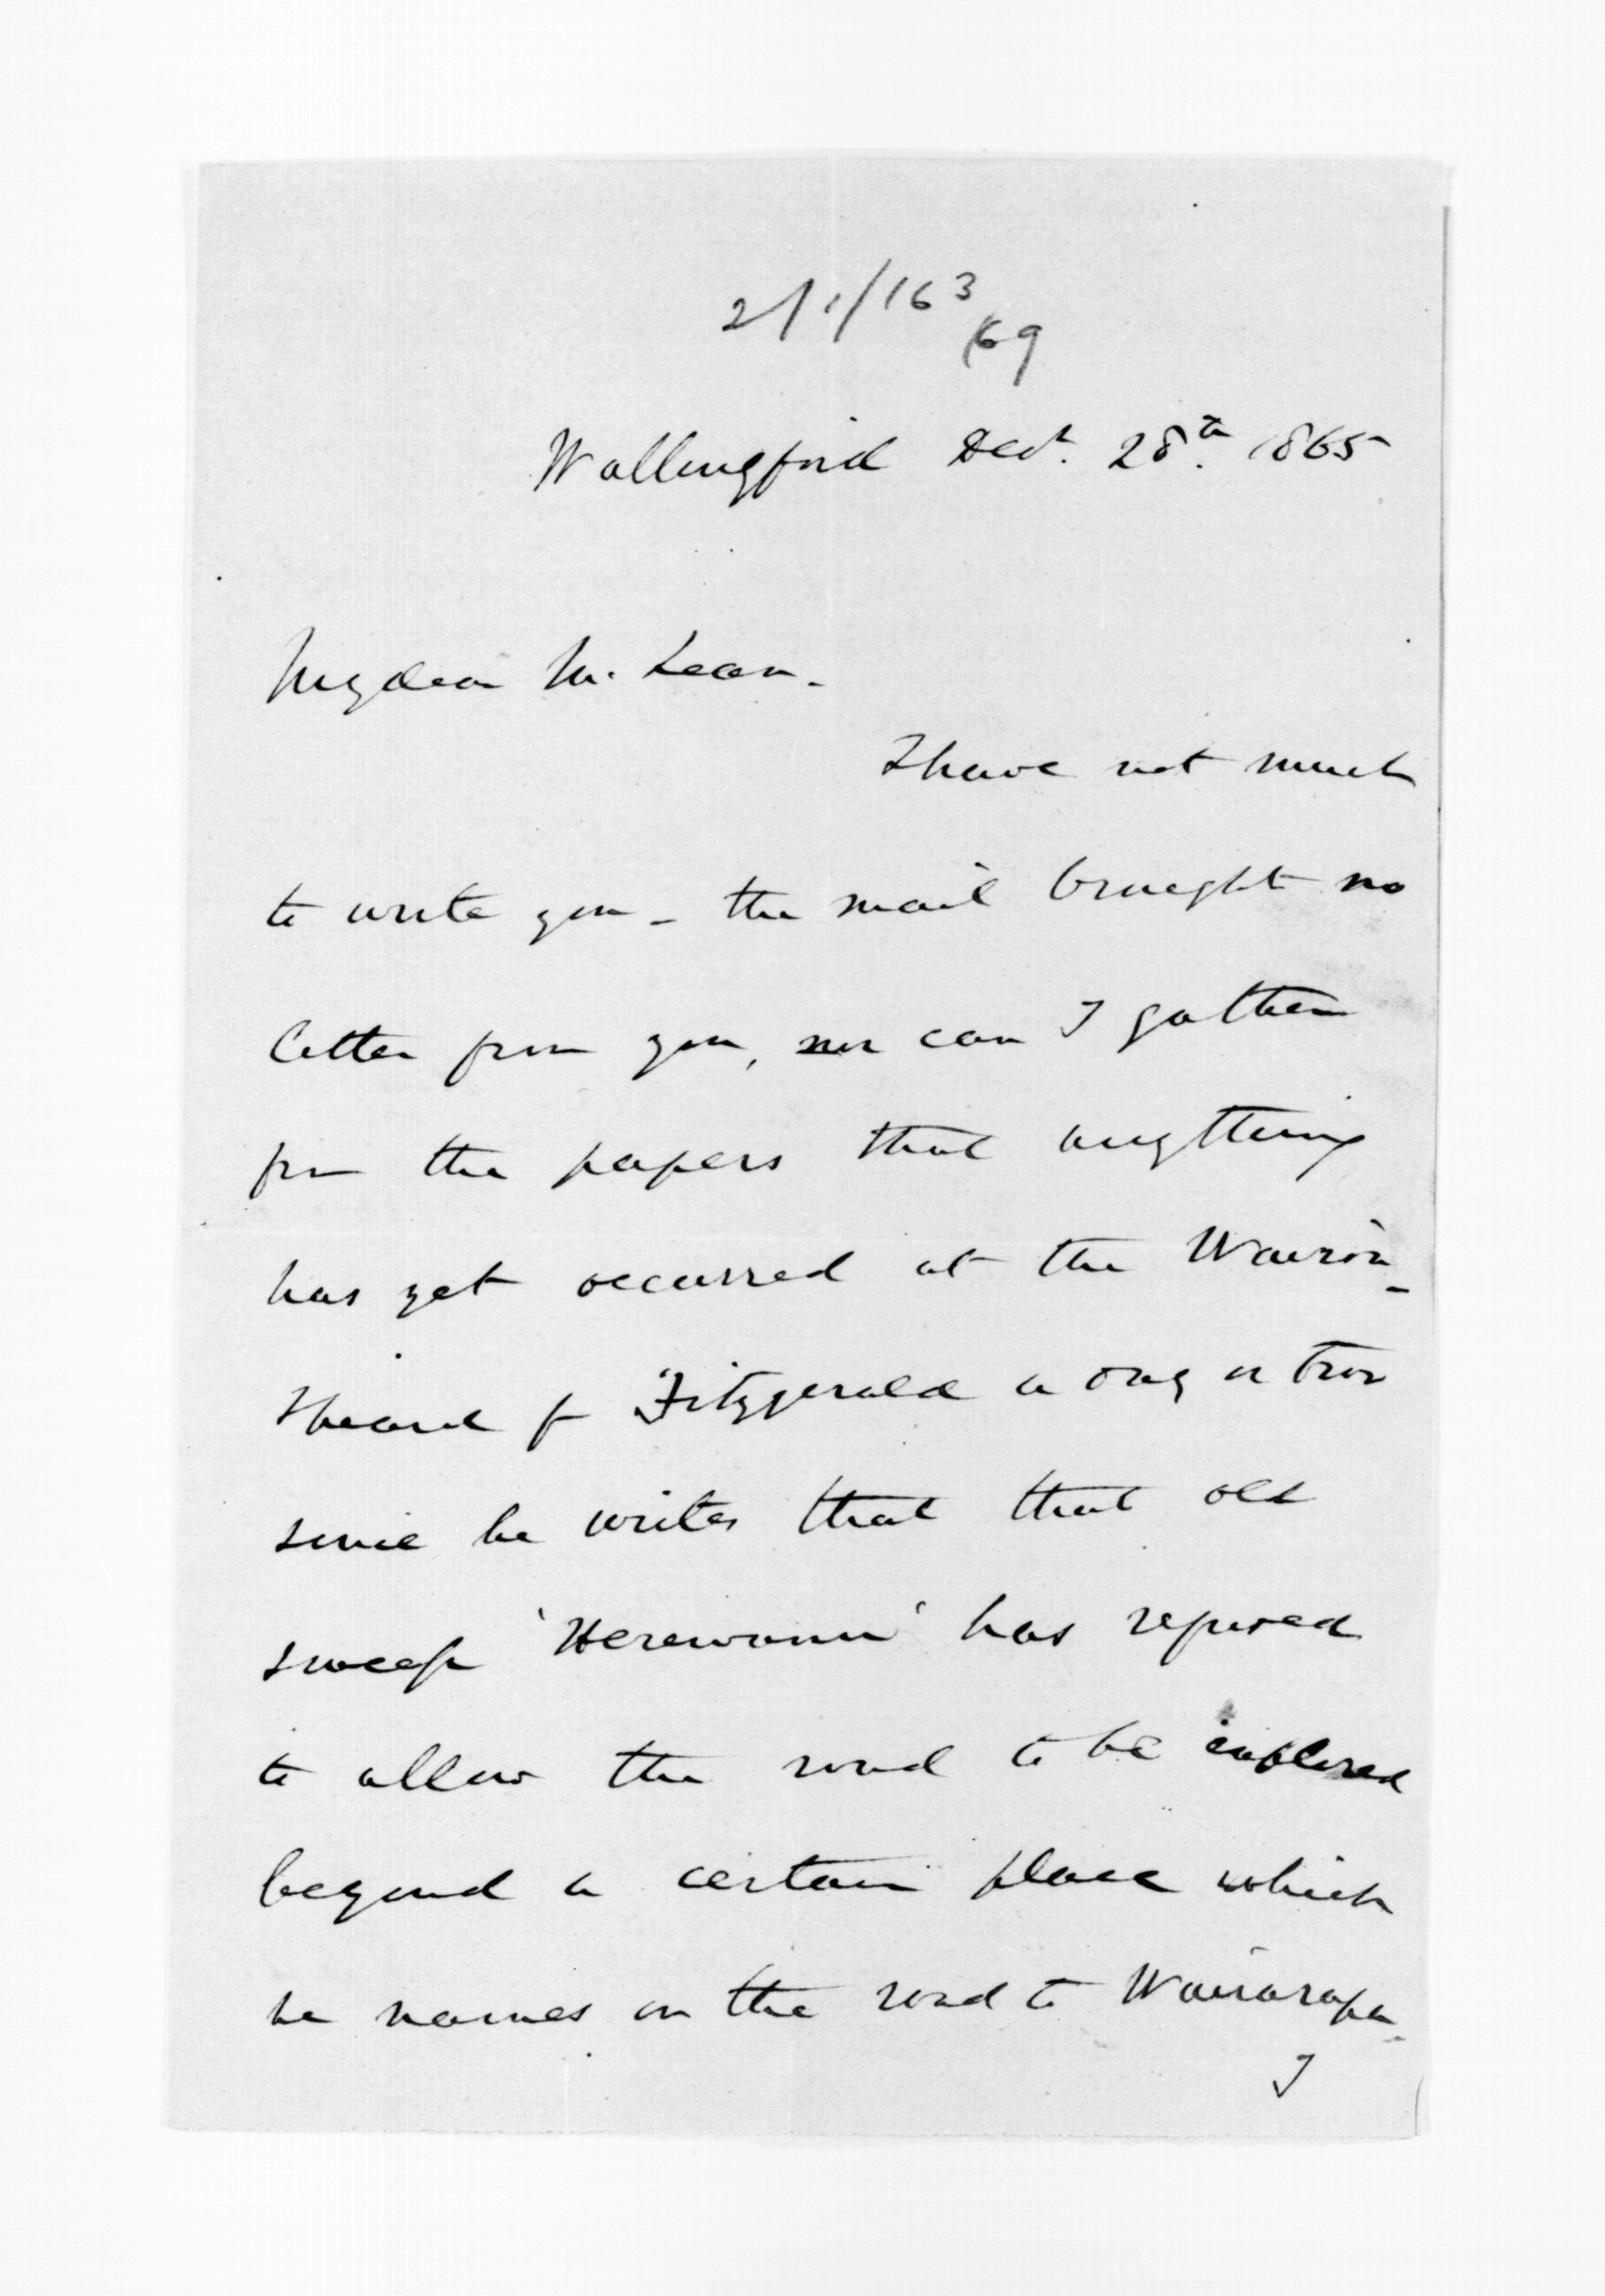 2/1/163
/69
Wallingford Decr. 28th. 1865
My dear McLean.
I have not much
to write you - the mail brought no
letter from you, nor can I gather
from the papers that anything
has yet occurred at the Wairoa -
I heard fm Fitzgerald a day or two
since he writes that that old
sweep 'Herewanu' has refused
to allow the road to be explored
beyond a certain place which
he names on the road to Wairarapa.
I